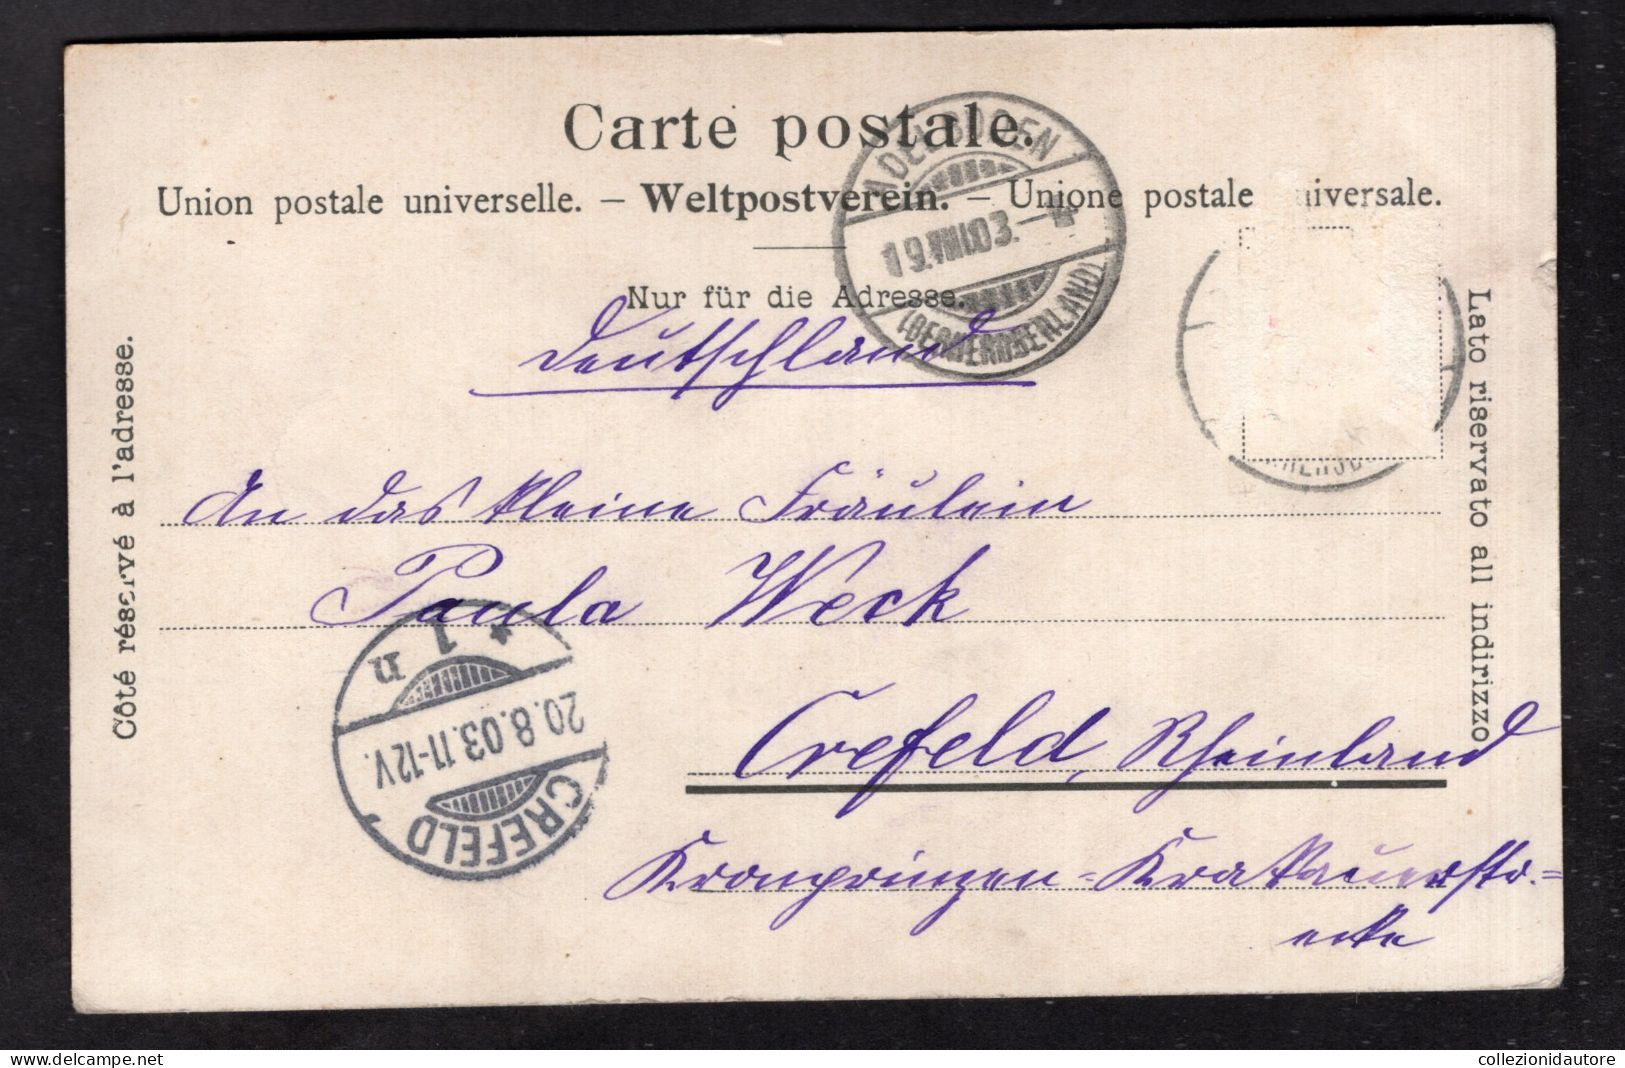 Carte postale.
Union postale universelle. – Weltpostverein. – Unione postale universale.
Nur für die Adresse.
ADELBODEN
19.VIII.03.
(BERNEROBERLAND)
Deutschland
Côté réservé à l'adresse.
Lato riservato all indirizzo
An das kleine Fräulein
Paula Weck
* 1 n
20.8.03.11-12V.
CREFELD
Crefeld, Rheinland
Kronprinzen-
ecke
collezionidautore